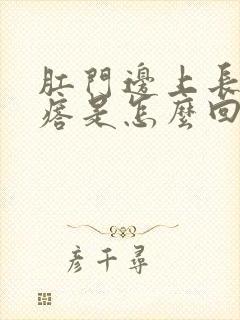 肛門邊上長
痞是怎麼回
彥千尋